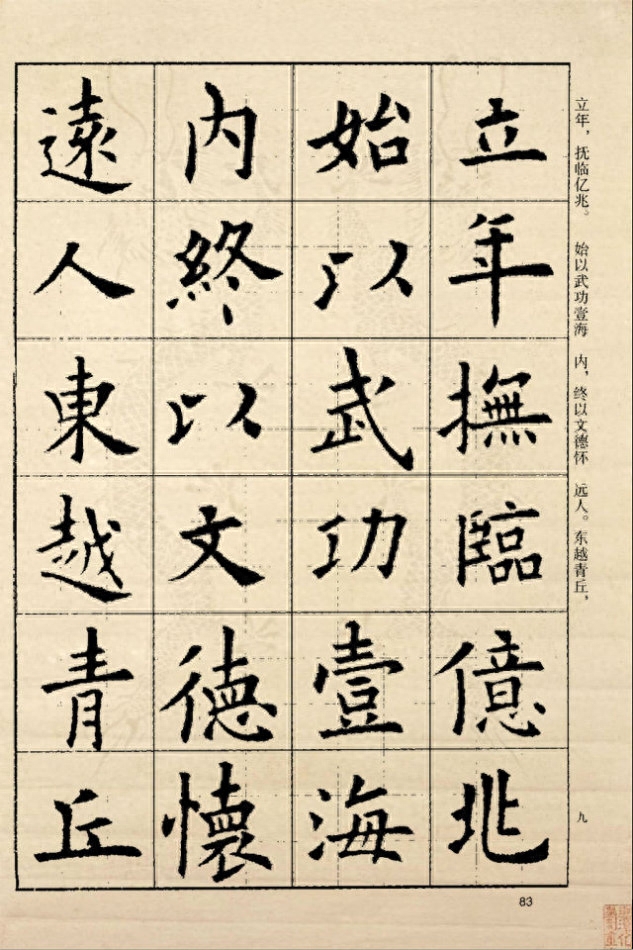 立年撫臨億兆
始以武功壹海
内終以文德懷
遠人東越青丘
立年，抚临亿兆。 始以武功壹海 内，终以文德怀 远人。东越青丘，
九
83